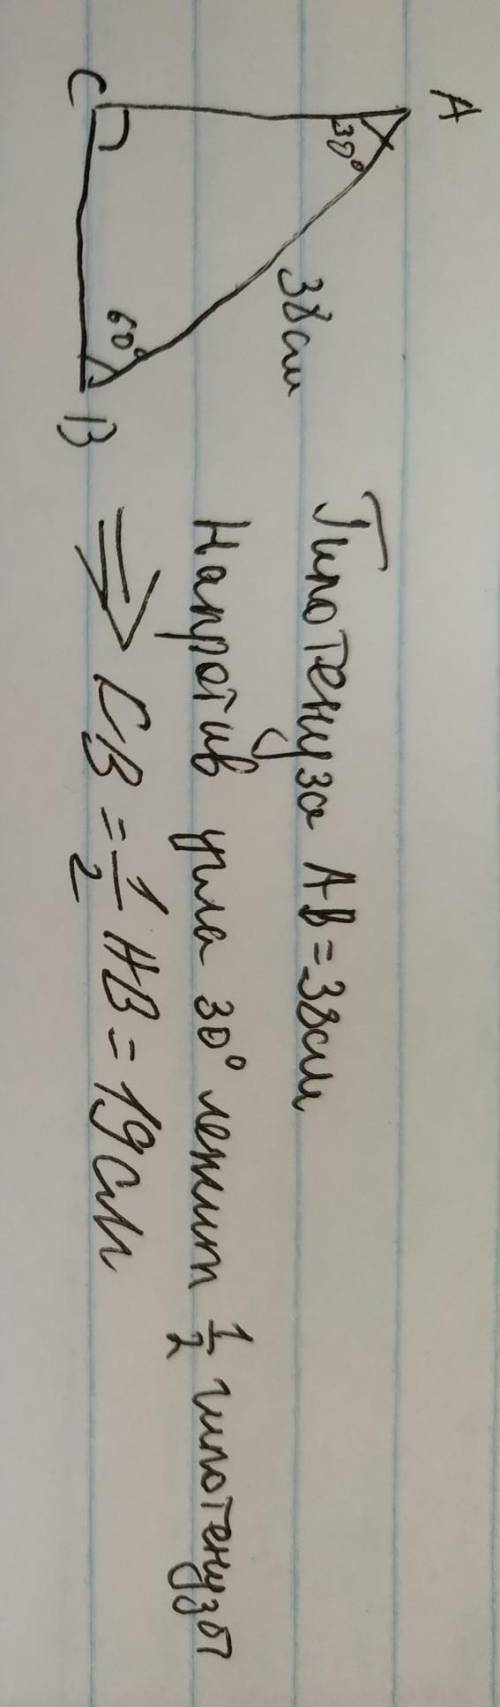 A
30°
38см
C
60°
B
Гипотенуза AB=38см
Напротив угла 30° лежит 1/2 гипотенузы
⇒ CB = 1/2 AB = 19см